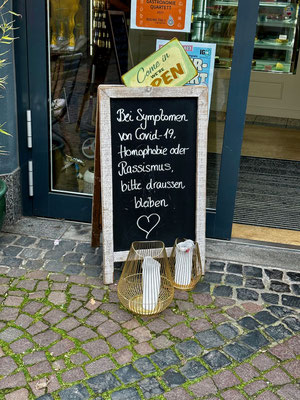 GASTRONOMIE
QUARTETT
Come in
OPEN
Bei Symptomen
von Covid-19,
Homophobie oder
Rassismus,
bitte draussen
bleiben